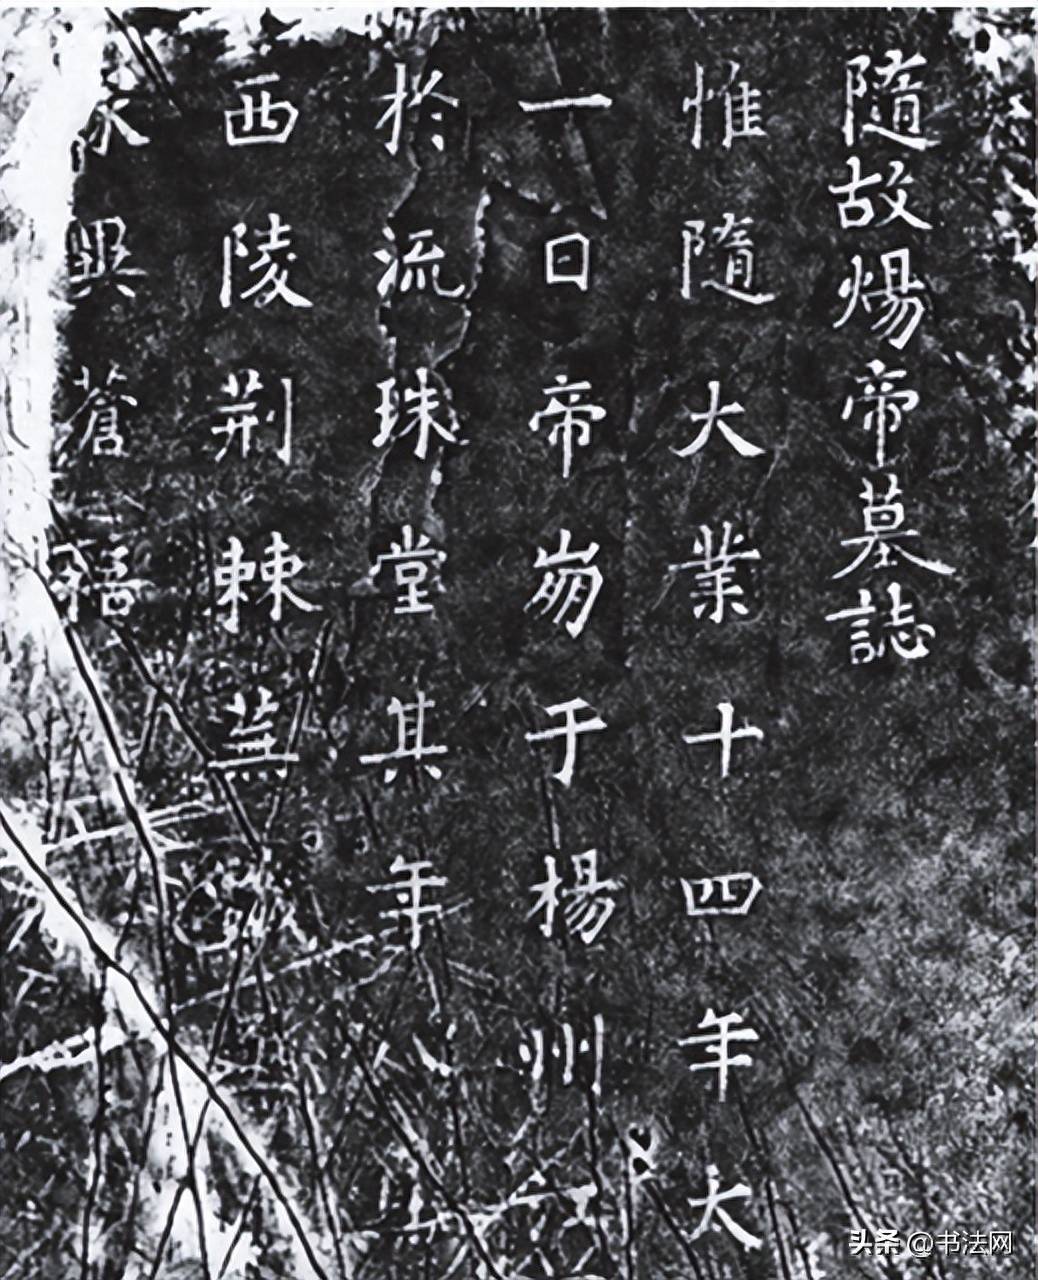 隨故煬帝墓誌
惟隨大業十四年太
一日帝崩于楊州
於流珠堂其年
西陵荆棘蕪
永異蒼梧
头条 @书法网